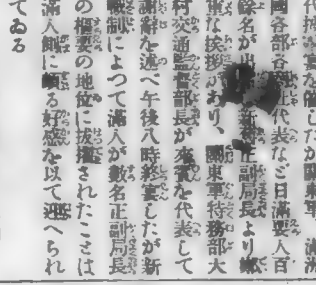 代
宴を催したが關東軍、滿洲
國各部各 社代表など日滿要人百
餘名が出 新 正副局長より鄭
重な挨拶があり、關東軍特務部大
村交通監督部長が來賓を代表して
謝辭を述べ午後八時終宴したが新
職制によつて滿人が數名正副局長
の樞要の地位に拔擢されたことは
滿人側に頗る好感を以て迎へられ
てゐる